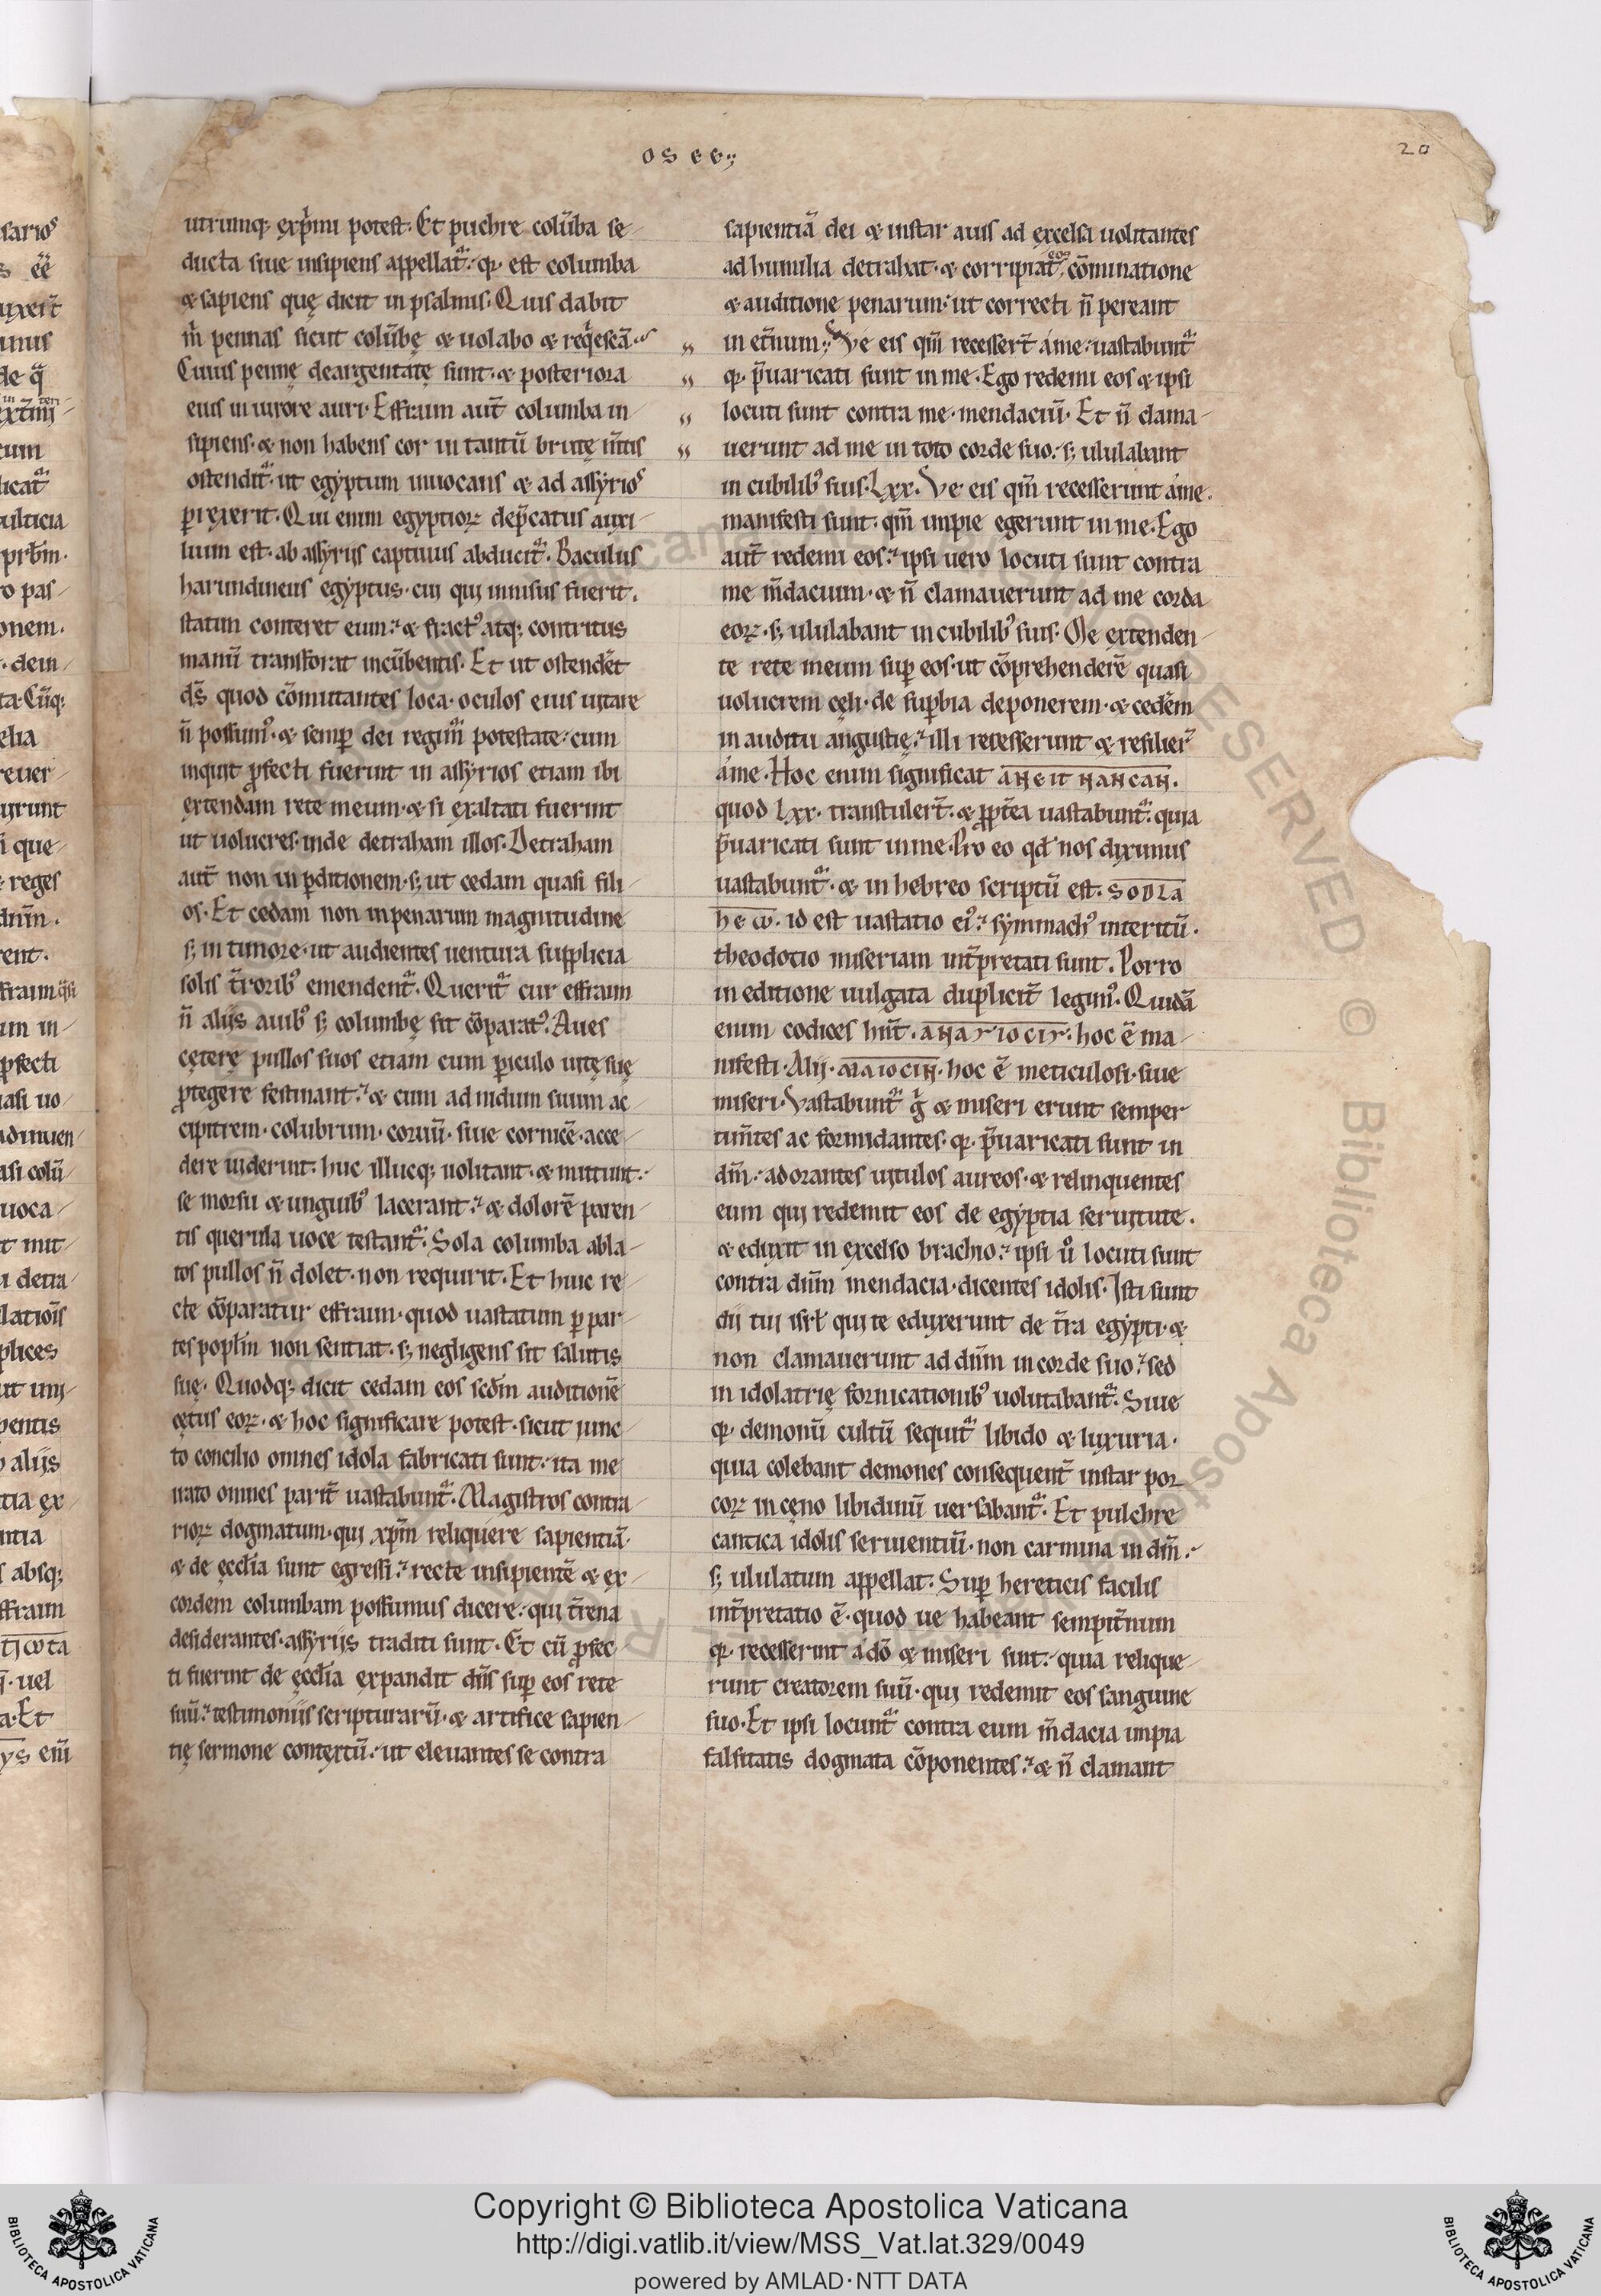 OSEE
20
utrumq; exp̄mi potest. Et puchre colūba se-
ducta siue insipiens appellat᷑. qꝛ est columba
& sapiens quę dicit in psalmis. Quis dabit
m̄ pennas sicut colūbę & uolabo & reqͥescā.
Cuius pennę deargentatę sunt. & posteriora
eius in iurore auri. Effraim aut̄ columba in-
sipiens. & non habens cor in tantū brutę m̄tis
ostendit᷑. ut egẏptum inuocans & ad assẏrioꝰ
ꝑrexerit. Qui enim egẏptioꝝ dep̄catus auxi-
lium est. ab assẏriis captiuus abducit᷑. Baculus
harundineus egẏptus. cui qui innisus fuerit.
statim conteret eum. & fractꝰ atq; contritus
manū transforat incūbentis. Et ut ostend̄et
dꝰs quod cōmutantes loca. oculos eius uitare
n̄ possumꝰ. & semꝑ dei regim̄ potestate. cum
inquit ꝓfecti fuerint in assẏrios etiam ibi
extendam rete meum. & si exaltati fuerint
ut uolucres. inde detraham illos. Detraham
aut̄ non in ꝑditionem. s; ut cedam quasi fili-
os. Et cedam non in penarum magnitudine
s; in timore. ut audientes uentura supplicia
solis t̄roribꝰ emendent᷑. Querit᷑ cur effraim
n̄ aliis auibꝰ s; columbę sit cōparatꝰ. Aues
cętere pullos suos etiam cum ꝑiculo uitę suę
ꝓtegere festinant. & cum ad nidum suum ac-
cipitrem. colubrum. coruū. siue cornicē. acce-
dere uiderint. huc illucq; uolitant. & mittunt.
se morsu & unguibꝰ lacerant. & dolorē paren-
tis querula uoce testant᷑. Sola columba abla-
tos pullos n̄ dolet. non requirit. Et huic re-
cte cōparatur effraim. quod uastatum ꝑ par-
tes popl̄m non sentiat. s; negligens sit salutis
suę. Quodq; dicit cedam eos scd̄m auditionē
cętus eoꝝ. & hoc significare potest. sicut iunc-
to concilio omnes idola fabricati sunt. ita me
irato omnes parit̄ uastabunt᷑. Magistros contra-
rioꝝ dogmatum. qui xp̄m reliquere sapientiā.
& de ęccl̄ia sunt egressi. recte insipientē & ex-
cordem columbam possumus dicere. qui t̄rena
desiderantes. assẏriis traditi sunt. Et cū ꝓfec-
ti fuerint de ęccl̄ia expandit dn̄s suꝑ eos rete
suū. testimoniis scripturarū. & artifice sapien-
tię sermone contextū. ut eleuantes se contra
sapientiā dei & instar auis ad excelsa uolitantes
ad humilia detrahat. & corripiat eos cōminatione
& auditione penarum. ut correcti n̄ pereant
in et̄num. Ve eis qm̄ recesser̄t a me. uastabunt᷑
qꝛ p̄uaricati sunt in me. Ego redemi eos & ipsi
locuti sunt contra me. mendaciū. Et n̄ clama-
uerunt ad me in toto corde suo. s; ululabant
in cubilibꝰ suis. Lxx. Ve eis qm̄ recesserunt a me.
manifesti sunt. qm̄ impie egerunt in me. Ego
aut̄ redemi eos. ipsi uero locuti sunt contra
me m̄dacium. & n̄ clamauerunt ad me corda
eoꝝ. s; ululabant in cubilibꝰ suis. Me extenden-
te rete meum suꝑ eos. ut cōprehenderē quasi
uolucrem cęli. de suꝑbia deponerem. & ced̄em
in auditu angustię. illi recesserunt & resilier̄
a me. Hoc enim significat
quod Lxx. transtuler̄t. & ꝓpt̄ea uastabunt᷑. quia
p̄uaricati sunt in me. Pro eo qd̄ nos diximus
uastabunt᷑. & in hebreo scriptū est. SODLA
he ω. id est uastatio eiꝰ. sẏmmachꝰ interitū.
theodotio miseriam int̄pretati sunt. Porro
in editione uulgata duplicit̄ legimꝰ. Quidā
enim codices hn̄t. hoc ē ma-
nifesti. Alii. hoc ē meticulosi. siue
miseri. Vastabunt᷑ g̊ & miseri erunt semper
tim̄tes ac formidantes. qꝛ p̄uaricati sunt in
dm̄. adorantes uitulos aureos. & relinquentes
eum qui redemit eos de egẏptia seruitute.
& eduxit in excelso brachio. ipsi ů locuti sunt
contra dm̄m mendacia. dicentes idolis. Isti sunt
dii tui isrl̄ qui te eduxerunt de t̄ra egẏpti. &
non clamauerunt ad dn̄m in corde suo. sed
in idolatrię fornicationibꝰ uolutabant᷑. Siue
qꝛ demonū cultū sequit᷑ libido & luxuria.
quia colebant demones consequent̄ instar por
coꝝ in cęno libidinū uersabant᷑. Et pulchre
cantica idolis seruientiū. non carmina in dm̄.
s; ululatum appellat. Suꝑ hereticis facilis
int̄pretatio ē. quod ue habeant sempit̄num
qꝛ recesserint a dō & miseri sint. quia relique-
runt creatorem suū. qui redemit eos sanguine
suo. Et ipsi locunt᷑ contra eum m̄dacia impia
falsitatis dogmata cōponentes. & n̄ clamant
Copyright © Biblioteca Apostolica Vaticana
http://digi.vatlib.it/view/MSS_Vat.lat.329/0049
powered by AMLAD·NTT DATA
BIBLIOTECA APOSTOLICA VATICANA
BIBLIOTECA APOSTOLICA VATICANA